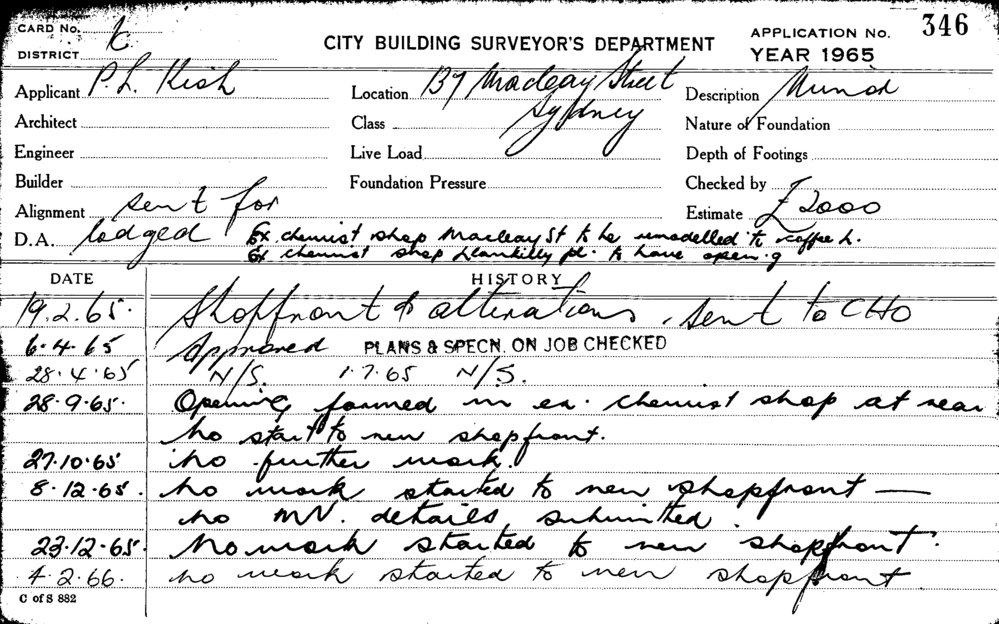 CARD No.
K
DISTRICT
CITY BUILDING SURVEYOR'S DEPARTMENT
APPLICATION No. 346
YEAR 1965
Applicant P. L. Kish
Location 137 Macleay Street
Sydney
Description Minor
Architect
Class
Nature of Foundation
Engineer
Live Load
Depth of Footings
Builder
Foundation Pressure
Checked by
Alignment sent for
Estimate £2000
D.A. lodged
Ex chemist shop Macleay St to be remodelled to coffee L.
Ex chemist shop Llankelly pl. to have open.g
DATE HISTORY
19.2.65. Shopfront & alterations, sent to CHO
6.4.65 Approved PLANS & SPECN. ON JOB CHECKED
28.4.65 N/S. 1.7.65 N/S.
28.9.65. Opening formed in ex. chemist shop at rear
No start to new shopfront.
27.10.65 No further work.
8.12.65. No work started to new shopfront —
no MV. details submitted.
23.12.65. No work started to new shopfront.
4.2.66. no work started to new shopfront
C of S 882